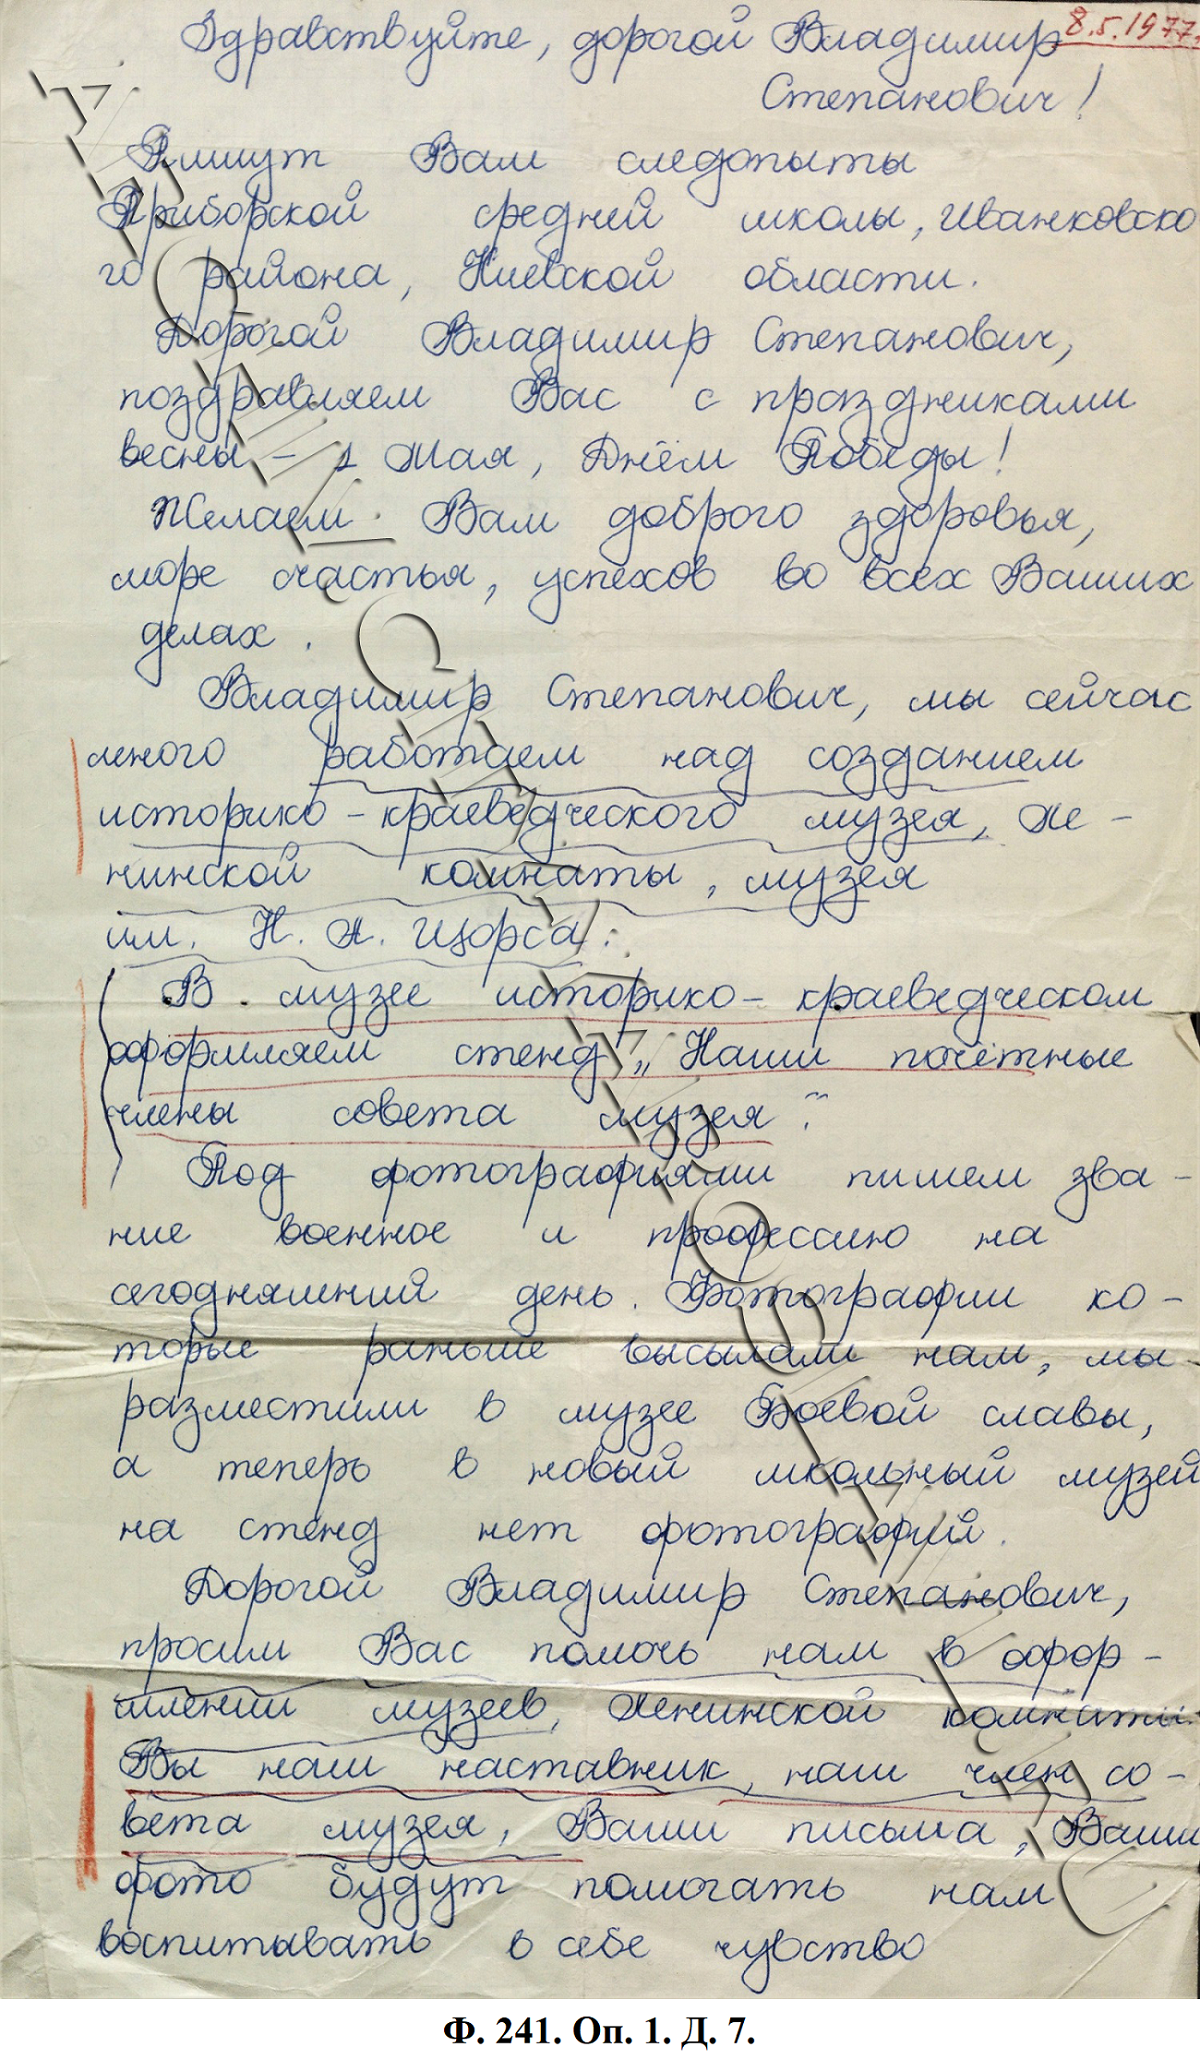 8.5.1977.
Здравствуйте, дорогой Владимир
Степанович!
Пишут Вам следопыты
Приборской средней школы, Иванковско
го района, Киевской области.
Дорогой Владимир Степанович,
поздравляем Вас с праздниками
весны – 1 Мая, Днём Победы!
Желаем Вам доброго здоровья,
море счастья, успехов во всех Ваших
делах.
Владимир Степанович, мы сейчас
много работаем над созданием
историко-краеведческого музея, Ле-
нинской комнаты, музея
им. Н. А. Щорса.
В музее историко-краеведческом
оформляем стенд „Наши почётные
члены совета музея".
Под фотографиями пишем зва-
ние военное и профессию на
сегодняшний день. Фотографии ко-
торые раньше высылали нам, мы
разместили в музее Боевой славы,
а теперь в новый школьный музей
на стенд нет фотографий.
Дорогой Владимир Степанович,
просим Вас помочь нам в офор-
млении музеев, Ленинской комнаты.
Вы наш наставник, наш член со-
вета музея, Ваши письма, Ваши
фото будут помогать нам
воспитывать в себе чувство
Ф. 241. Оп. 1. Д. 7.